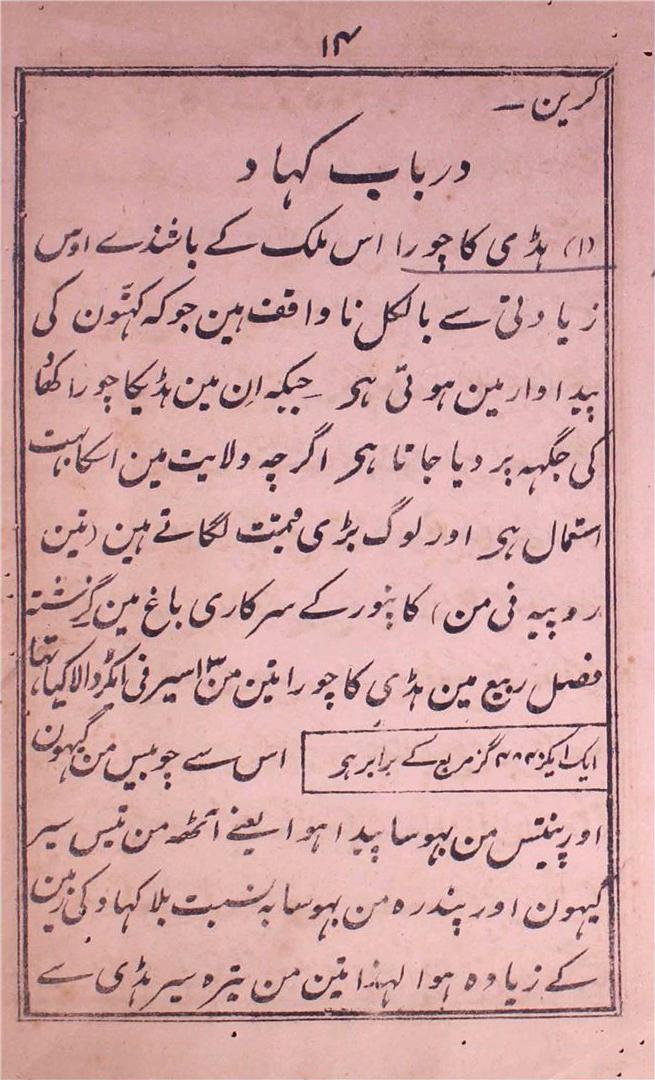 ۱۴
کرین ۔
درباب کہاد
(۱) ہڈی کا چورا اس ملک کے باشندے اوس
زیادتی سے بالکل ناواقف ہین جو کہ کہیتون کی
پیداوار مین ہوتی ہی جبکہ ان مین ہڈیکا چورا کہاد
کی جگہہ پر دیا جاتا ہی اگرچہ ولایت مین اسکا بہت
استمال ہی اور لوگ بڑی قیمت لگاتے ہین (تین
روپیہ فی من) کانپور کے سرکاری باغ مین گزشتہ
فصل ربیع مین ہڈی کا چورا تین من ۱۳سیر فی ایکڑ ڈالا گیا تہا
ایک ایکڑ ۴۸۴۰ گز مربع کے برابر ہی
اس سے چوبیس من گیہون
اور پینتیس من بہوسا پیدا ہوا یعنے آٹھہ من تیس سیر
گیہون اور پندرہ من بہوسا بہ نسبت بلا کہاد کی زمین
کے زیادہ ہوا لہذا تین من تیرہ سیر ہڈی سے